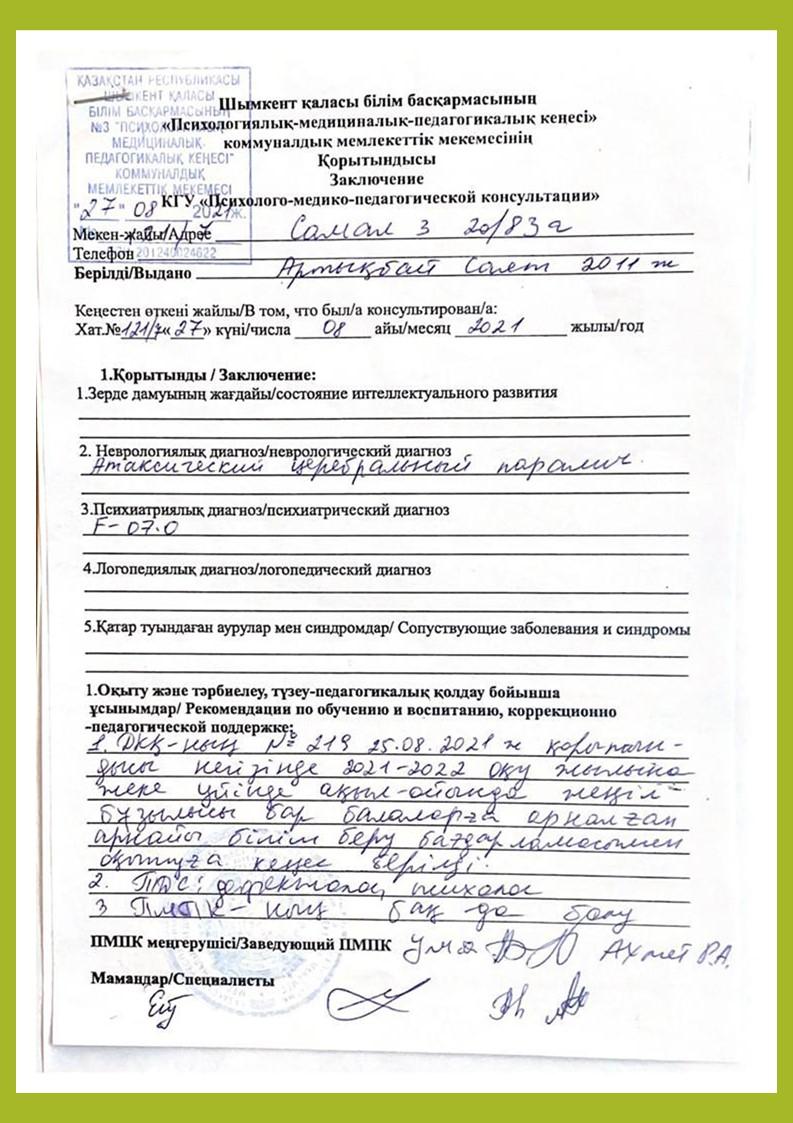 ҚАЗАҚСТАН РЕСПУБЛИКАСЫ
ШЫМКЕНТ ҚАЛАСЫ
БІЛІМ БАСҚАРМАСЫНЫҢ
№3 "ПСИХОЛОГИЯЛЫҚ
МЕДИЦИНАЛЫҚ
ПЕДАГОГИКАЛЫҚ КЕҢЕСІ"
КОММУНАЛДЫҚ
МЕМЛЕКЕТТІК МЕКЕМЕСІ
"27" 08 2021ж.
201240024622
Шымкент қаласы білім басқармасының
«Психологиялық-медициналық-педагогикалық кеңесі»
коммуналдық мемлекеттік мекемесінің
Қорытындысы
Заключение
КГУ «Психолого-медико-педагогической консультации»
Мекен-жайы/Адрес Самал 3 20/83а
Телефон
Берілді/Выдано Артықбай Саят 2011 ж
Кеңестен өткені жайлы/В том, что был/а консультирован/а:
Хат.№121/7« 27» күні/числа 08 айы/месяц 2021 жылы/год
1.Қорытынды / Заключение:
1.Зерде дамуының жағдайы/состояние интеллектуального развития
2. Неврологиялық диагноз/неврологический диагноз
Атаксический церебральный паралич.
3.Психиатриялық диагноз/психиатрический диагноз
F-07.0
4.Логопедиялық диагноз/логопедический диагноз
5.Қатар туындаған аурулар мен синдромдар/ Сопуствующие заболевания и синдромы
1.Оқыту және тәрбиелеу, түзеу-педагогикалық қолдау бойынша
ұсынымдар/ Рекомендации по обучению и воспитанию, коррекционно
-педагогической поддержке:
1. ДКК-ның № 219 25.08.2021 ж қорытын-
дысы негізінде 2021-2022 оқу жылына
жеке үйінде ақыл-ойында жеңіл
бұзылысы бар балаларға арналған
арнайы білім беру бағдарламасымен
оқытуға кеңес берілді.
2. ППС: дефектолог, психолог
3 ПМПК-ның бақ-да болу
ПМПК меңгерушісі/Заведующий ПМПК Ахмет Р.А.
Мамандар/Специалисты